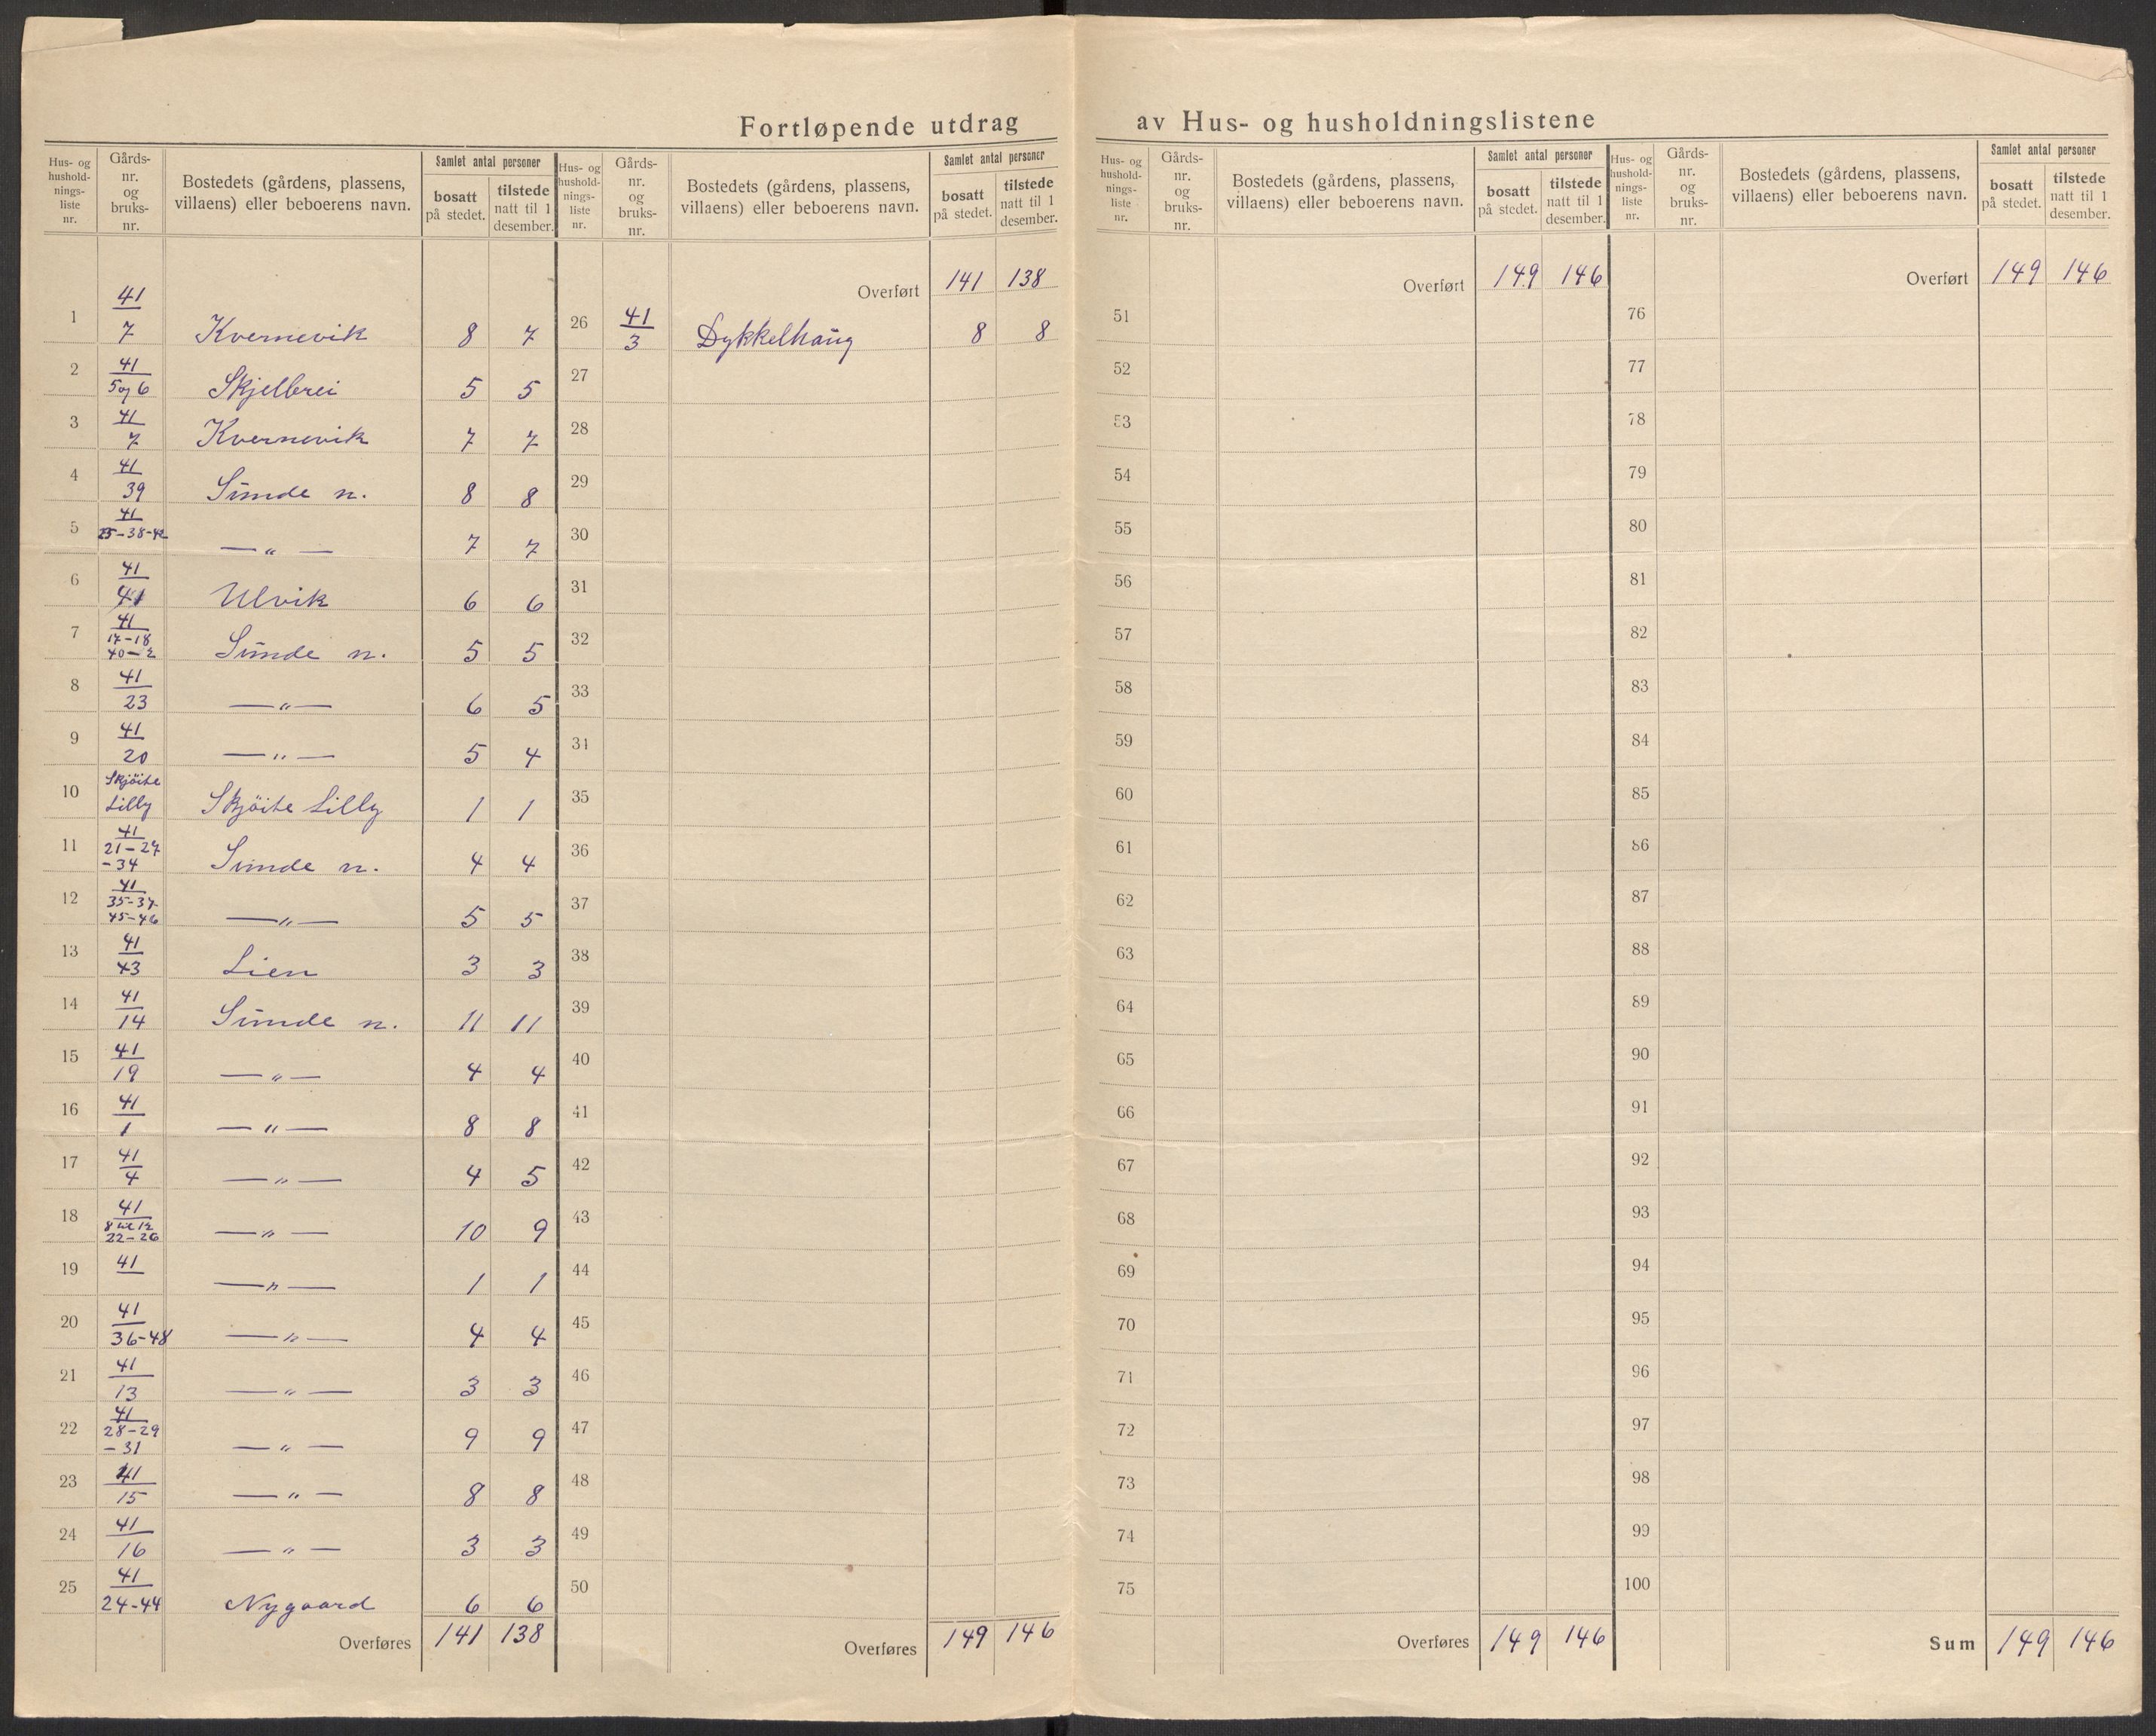 Fortløpende utdrag av Hus- og husholdningslistene
Hus- og hushold- nings- liste nr.
Gårds- nr. og bruks- nr.
Bostedets (gårdens, plassens, villaens) eller beboerens navn.
Samlet antal personer
bosatt på stedet.
tilstede natt til 1 desember.
1 41/7 Kvernevik 8 7
2 41/5 og 6 Skjelbrei 5 5
3 41/7 Kvernevik 7 7
4 41/39 Sunde n. 8 8
5 41/25-38-42 —"— 7 7
6 41/41 Ulvik 6 6
7 41/17-18 40-2 Sunde n. 5 5
8 41/23 —"— 6 5
9 41/20 —"— 5 4
10 Skjöite Lilly Skjöite Lilly 1 1
11 41/21-27-34 Sunde n. 4 4
12 41/35-37-45-46 —"— 5 5
13 41/43 Lien 3 3
14 41/14 Sunde n. 11 11
15 41/19 —"— 4 4
16 41/1 —"— 8 8
17 41/4 —"— 4 5
18 41/8 til 12 22-26 —"— 10 9
19 41 —"— 1 1
20 41/36-48 —"— 4 4
21 41/13 —"— 3 3
22 41/28-29-31 —"— 9 9
23 41/15 —"— 8 8
24 41/16 —"— 3 3
25 41/24-44 Nygaard 6 6
Overføres 141 138
Hus- og hushold- nings- liste nr.
Gårds- nr. og bruks- nr.
Bostedets (gårdens, plassens, villaens) eller beboerens navn.
Samlet antal personer
bosatt på stedet.
tilstede natt til 1 desember.
Overført 141 138
26 41/3 Dykkelhaug 8 8
27
28
29
30
31
32
33
34
35
36
37
38
39
40
41
42
43
44
45
46
47
48
49
50
Overføres 149 146
Hus- og hushold- nings- liste nr.
Gårds- nr. og bruks- nr.
Bostedets (gårdens, plassens, villaens) eller beboerens navn.
Samlet antal personer
bosatt på stedet.
tilstede natt til 1 desember.
Overført 149 146
51
52
53
54
55
56
57
58
59
60
61
62
63
64
65
66
67
68
69
70
71
72
73
74
75
Overføres 149 146
Hus- og hushold- nings- liste nr.
Gårds- nr. og bruks- nr.
Bostedets (gårdens, plassens, villaens) eller beboerens navn.
Samlet antal personer
bosatt på stedet.
tilstede natt til 1 desember.
Overført 149 146
76
77
78
79
80
81
82
83
84
85
86
87
88
89
90
91
92
93
94
95
96
97
98
99
100
Sum 149 146